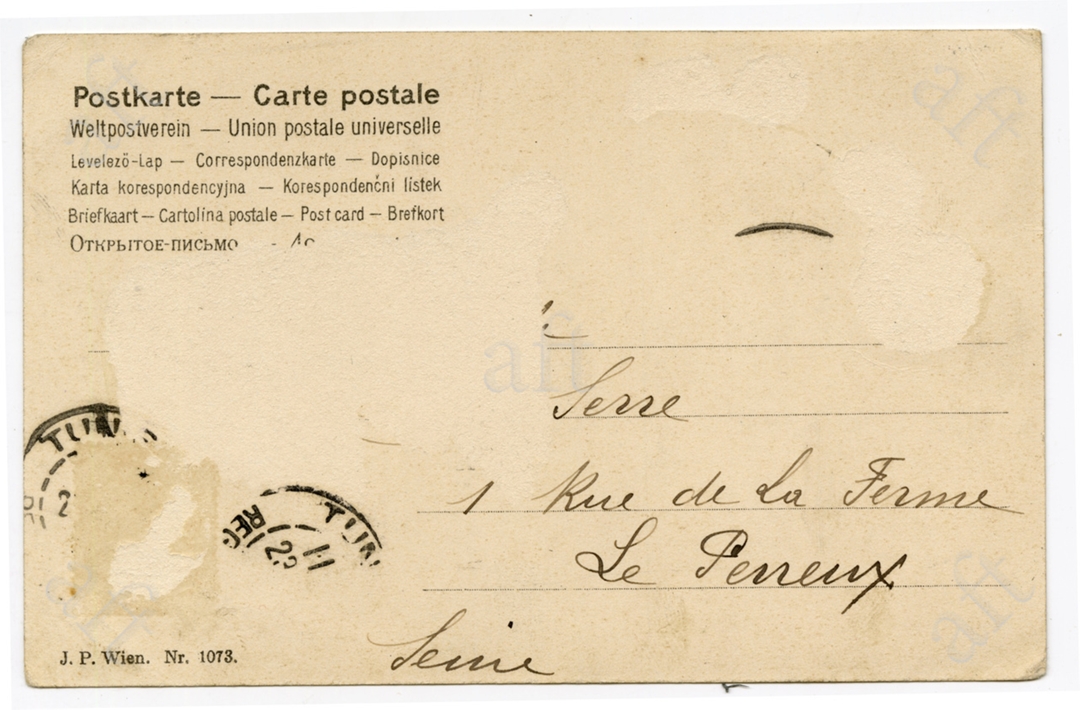 Postkarte — Carte postale
Weltpostverein — Union postale universelle
Levelezö-Lap — Correspondenzkarte — Dopisnice
Karta korespondencyjna — Korespondenčni listek
Briefkaart — Cartolina postale — Post card — Brefkort
Открытое-письмо -
Serre
1 Rue de La Ferme
Le Perreux
Seine
TUN
2
TUN
REG
11
22
J. P. Wien. Nr. 1073.
aft
aft
aft
aft
aft